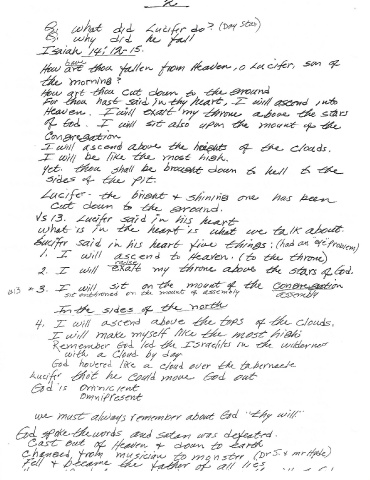 Q. what did Lucifer do? (Day Star)
Q. why did he fall
Isaiah 14:12-15.
How have art thou fallen from Heaven, o Lucifer, son of
the morning?
How art thou cut down to the ground
For thou hast said in thy heart, I will ascend into
Heaven. I will exalt my throne above the stars
of God. I will sit also upon the mount of the
Congregation
I will ascend above the heights of the clouds.
I will be like the most high.
Yet thou shall be brought down to hell to the
sides of the pit.
Lucifer - the bright & shining one has been
cut down to the ground.
Vs 13. Lucifer said in his heart
what is in the heart is what we talk about.
Lucifer said in his heart five things: (had an eye problem)
1. I will ascend to Heaven. (to the throne)
2. I will raise exalt my throne above the stars of God.
3. I will sit on the mount of the congregation
sit enthroned on the mount of assembly assembly
In the sides of the north
4. I will ascend above the tops of the clouds.
I will make myself like the most high
Remember God led the Israelites in the wilderness
with a cloud by day.
God hovered like a cloud over the tabernacle
Lucifer that he could move God out
God is Omnicient
Omnipresent
we must always remember about God "thy will"
God spoke the words and satan was defeated.
Cast out of Heaven & down to earth
changed from musician to monster (Dr J & mr Hyde)
Fell & became the father of all lies